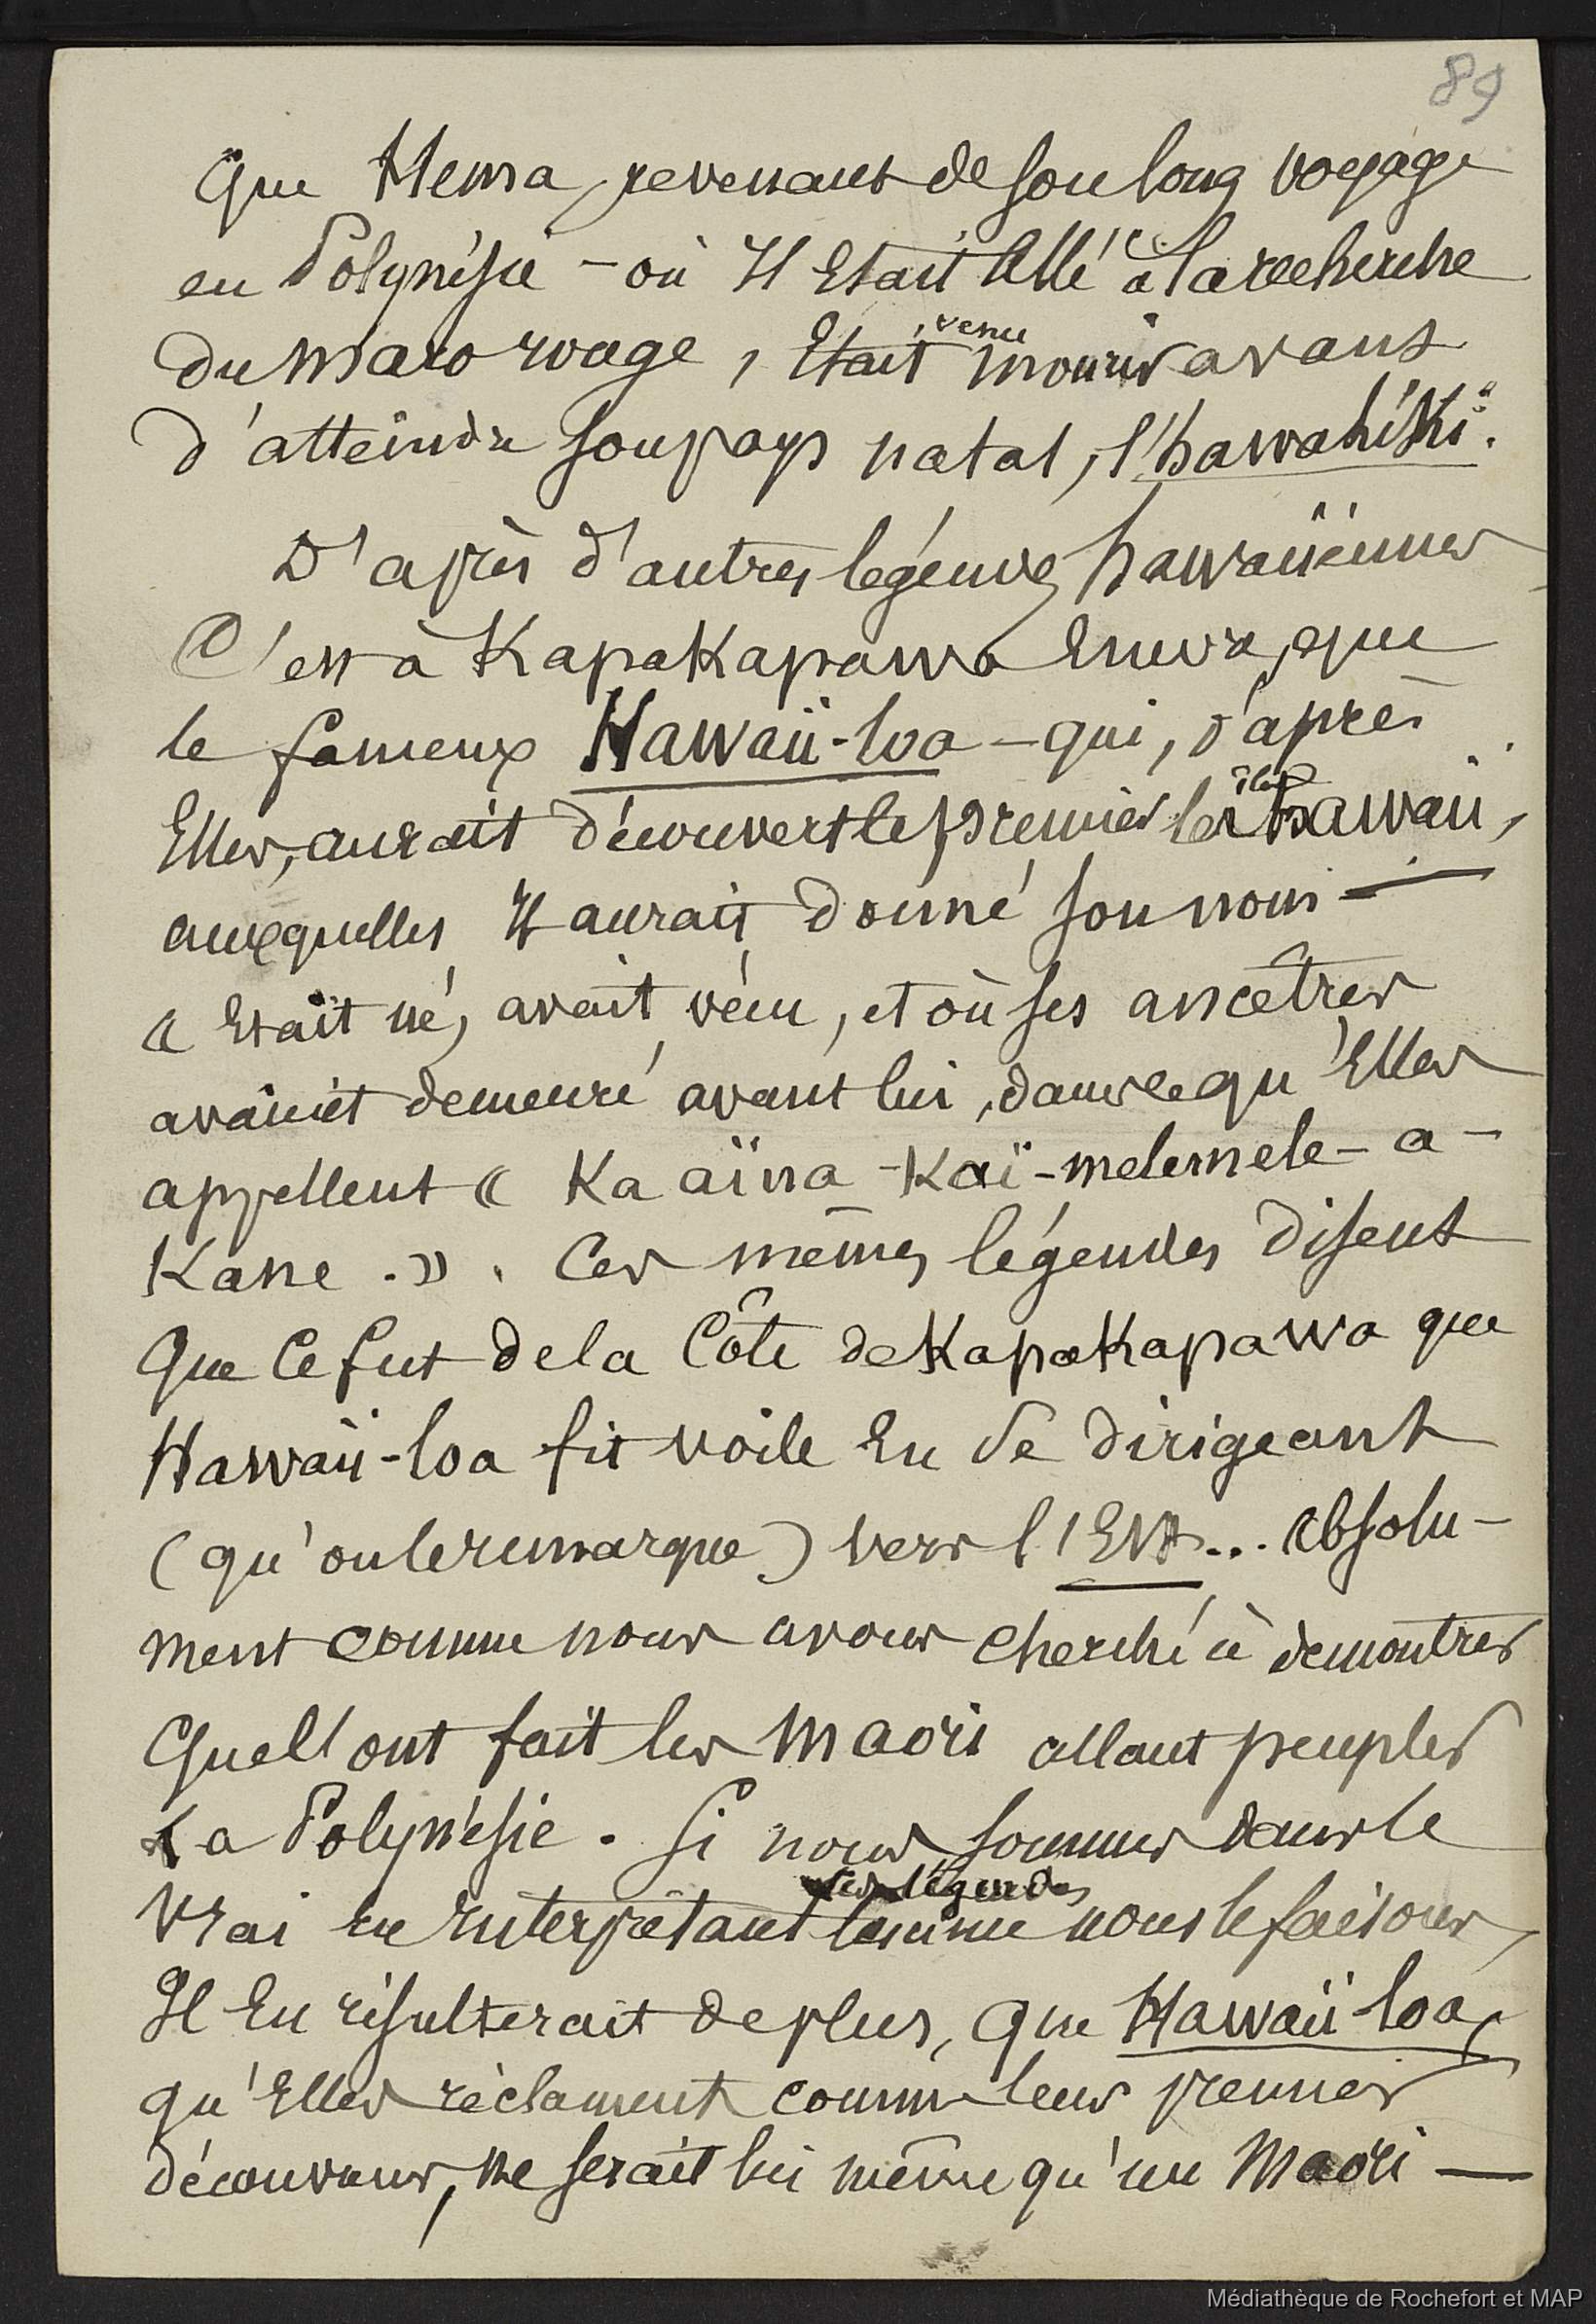 89
Que Hema, revenant de son long voyage
en Polynésie – où Il Etait allé à la recherche
du Maro rouge, Etait venu mourir avant
d'atteindre son pays natal, l'hawahiki.
D'après d'autres légendes hawaiiennes
C'est à Kapakapawa Encore, que
le fameux Hawaii-loa – qui, d'après
Elles, aurait découvert le premier les îles hawaii,
auxquelles Il aurait donné son nom –
« Etait né, avait vécu, et où ses ancêtres
avaient demeuré avant lui, dans ce qu'Elles
appellent « Ka aïna - Kaï - melemele - a -
Kane. ». Ces mêmes légendes disent
Que ce fut de la Côte de Kapakapawa que
Hawaii-loa fit voile En se dirigeant
(qu'on le remarque) vers l'Est... absolu-
ment comme nous avons cherché à démontrer
Que l'ont fait les Maori allant peupler
La Polynésie. Si nous sommes dans le
les légendes
vrai en interprétant comme nous le faisons,
Il En résulterait de plus, que Hawaii-loa,
qu'Elles réclament comme leur premier
découvreur, ne serait lui même qu'un Maori —
Médiathèque de Rochefort et MAP